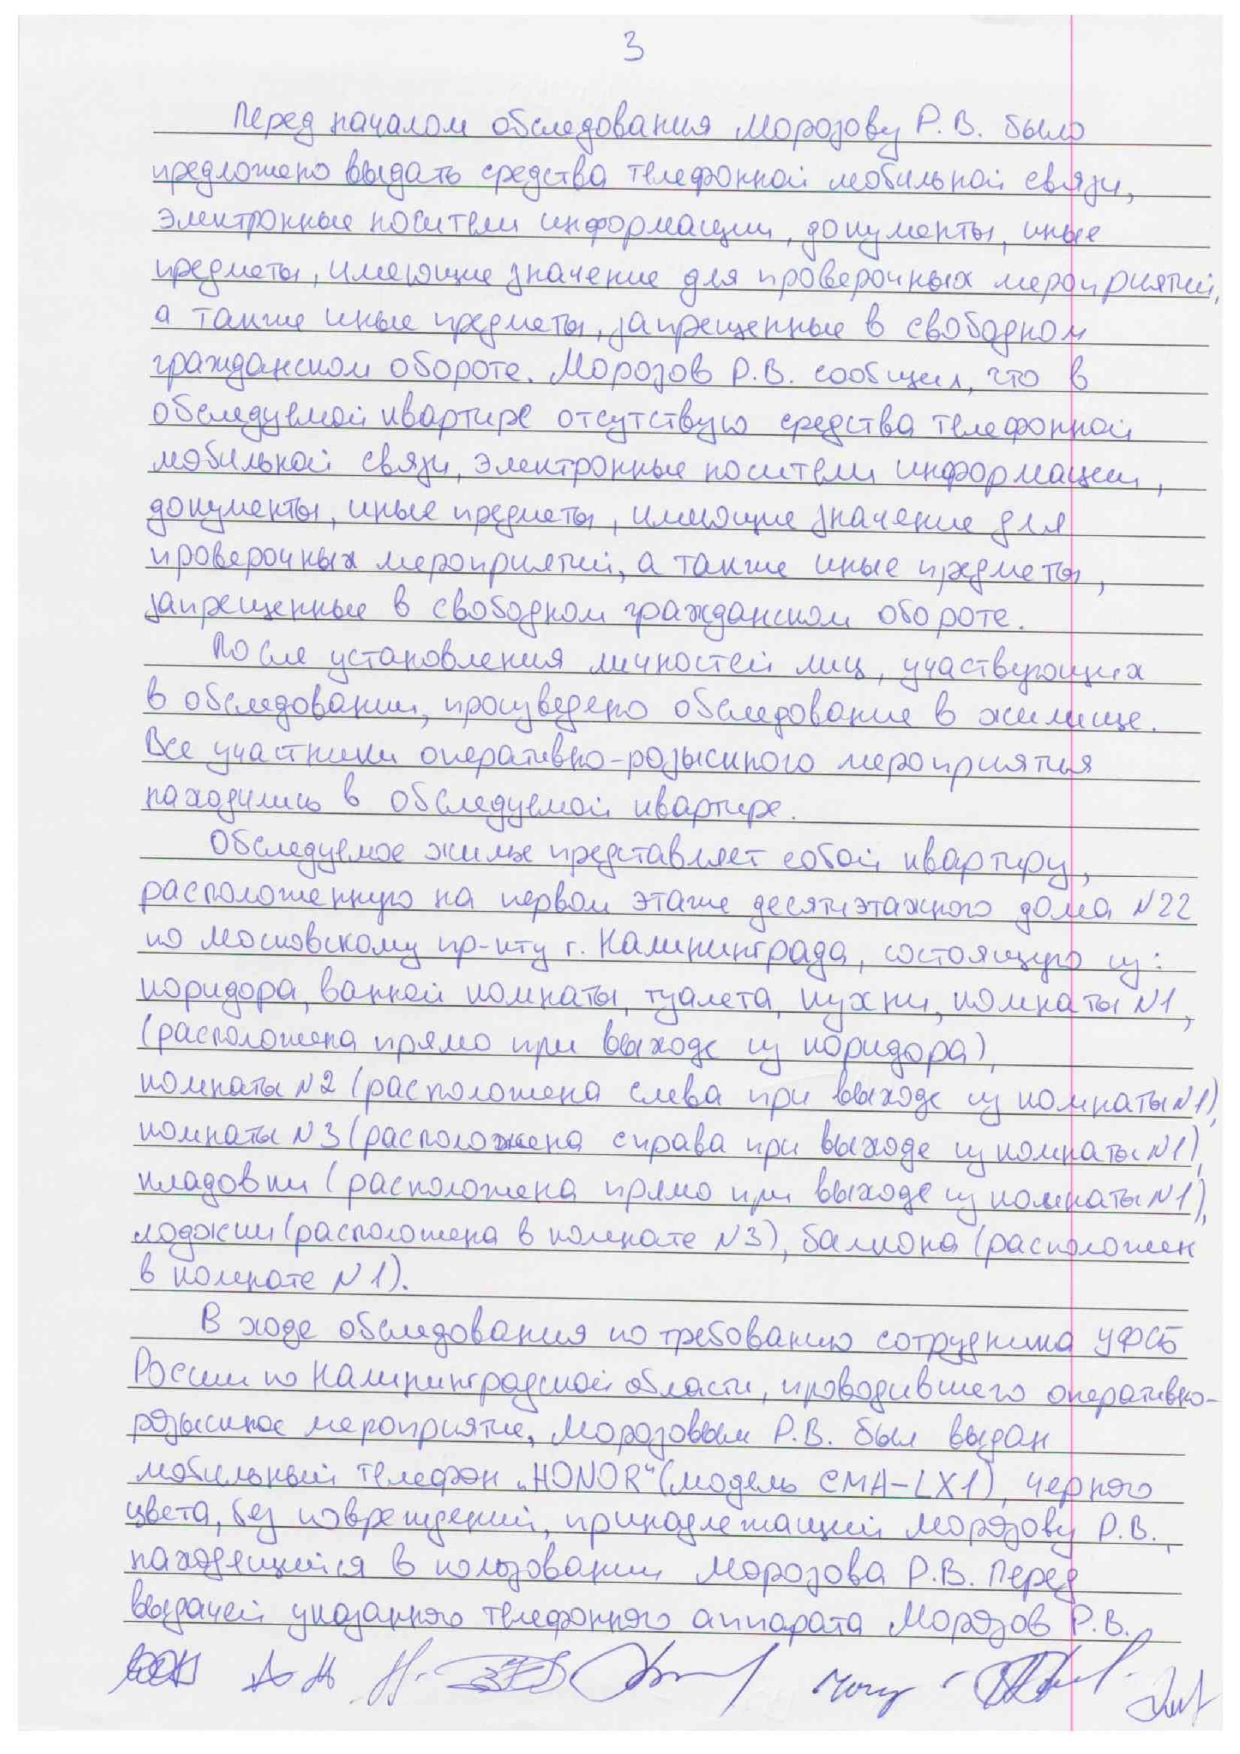 3
Перед началом обследования Морозову Р.В. было
предложено выдать средства телефонной мобильной связи,
электронные носители информации, документы, иные
предметы, имеющие значение для проверочных мероприятий,
а также иные предметы, запрещенные в свободном
гражданском обороте. Морозов Р.В. сообщил, что в
обследуемой квартире отсутствую средства телефонной
мобильной связи, электронные носители информации,
документы, иные предметы, имеющие значение для
проверочных мероприятий, а также иные предметы,
запрещенные в свободном гражданском обороте.
После установления личностей лиц, участвующих
в обследовании, произведено обследование в жилище.
Все участники оперативно-розыскного мероприятия
находились в обследуемой квартире.
Обследуемое жилье представляет собой квартиру,
расположенную на первом этаже десятиэтажного дома №22
по Московскому пр-кту г. Калининграда, состоящую из:
коридора, ванной комнаты, туалета, кухни, комнаты №1,
(расположена прямо при выходе из коридора),
комнаты №2 (расположена слева при выходе из комнаты №1),
комнаты №3 (расположена справа при выходе из комнаты №1),
кладовки (расположена прямо при выходе из комнаты №1),
лоджии (расположена в комнате №3), балкона (расположен
в комнате №1).
В ходе обследования по требованию сотрудника УФСБ
России по Калининградской области, проводившего оперативно-
розыскное мероприятие, Морозовым Р.В. был выдан
мобильный телефон „HONOR" (модель CMA-LX1), черного
цвета, без повреждений, принадлежащий Морозову Р.В.,
находящийся в пользовании Морозова Р.В. Перед
выдачей указанного телефонного аппарата Морозов Р.В.